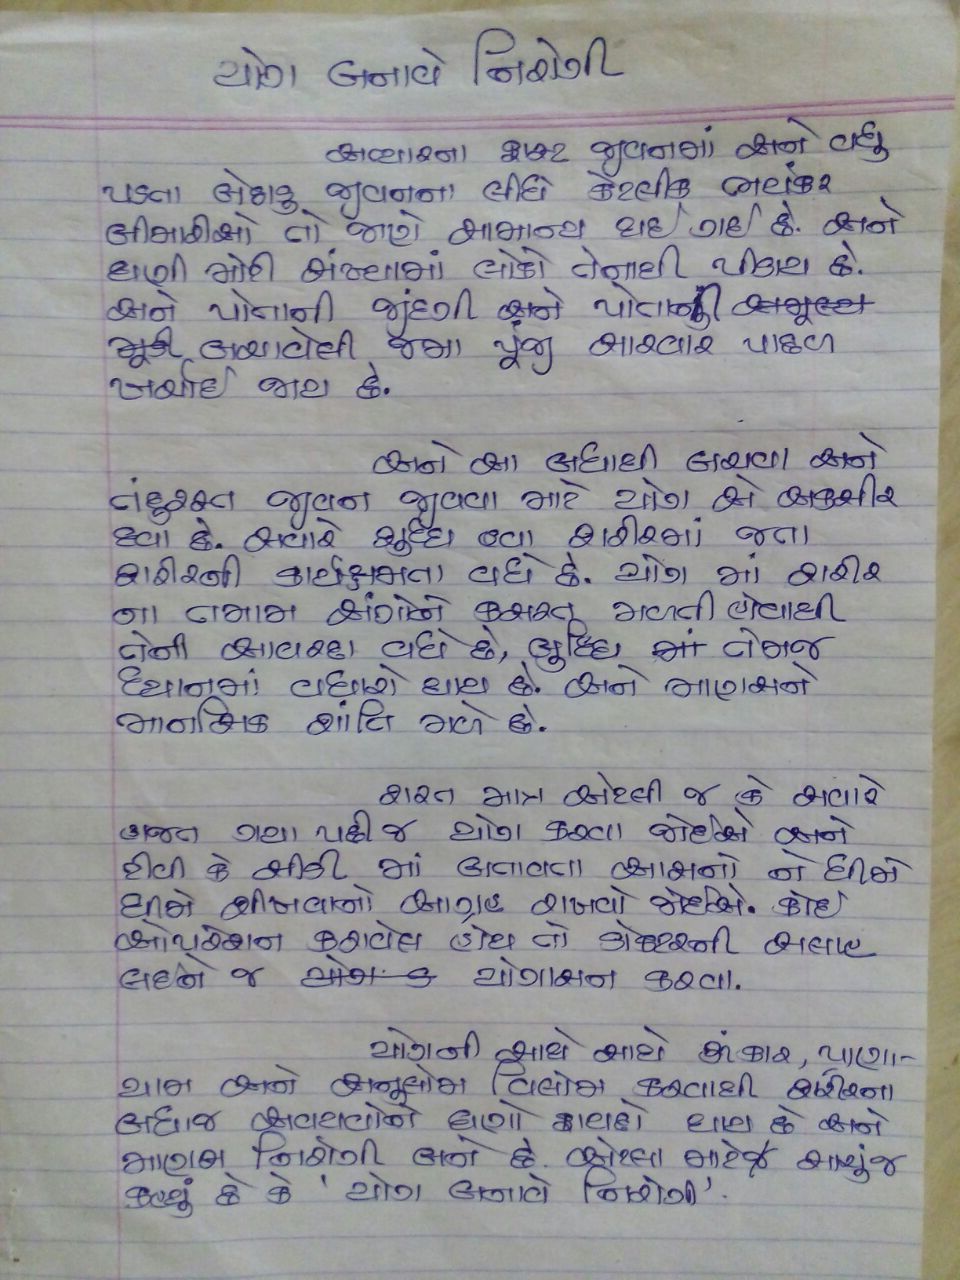 યોગ બનાવે નિરોગી
અત્યારના ફાસ્ટ જીવનમાં અને વધુ
પડતા બેઠાડુ જીવનના લીધે કેટલીક ભયંકર
બીમારીઓ તો જાણે સામાન્ય થઈ ગઈ છે. અને
ઘણી મોટી સંખ્યામાં લોકો તેનાથી પીડાય છે.
અને પોતાની જીંદગી અને પોતાની અમૂલ્ય
મૂડી બચાવેલી જમા પૂંજી સારવાર પાછળ
ખર્ચાઈ જાય છે.
અને આ બધાથી બચવા અને
તંદુરસ્ત જીવન જીવવા માટે યોગ એ અકસીર
દવા છે. સવારે શુદ્ધ હવા શરીરમાં જતા
શરીરની કાર્યક્ષમતા વધે છે. યોગ માં શરીર
ના તમામ અંગોને કસરત મળતી હોવાથી
તેની આવરદા વધે છે, બુદ્ધિ માં તેમજ
ધ્યાનમાં વધારો થાય છે. અને માણસને
માનસિક શાંતિ મળે છે.
શરત માત્ર એટલી જ કે સવારે
જાજત ગયા પછી જ યોગ કરવા જોઈએ અને
ટીવી કે સીડી માં બતાવતા આસનો ને ધીમે
ધીમે શીખવાનો આગ્રહ રાખવો જોઈએ. કોઈ
ઓપરેશન કરાવેલ હોય તો ડોક્ટરની સલાહ
લઇને જ યોગ ક યોગાસન કરવા.
યોગની સાથે સાથે ૐકાર, પ્રાણા-
યામ અને અનુલોમ વિલોમ કરવાથી શરીરના
બધાજ અવયવોને ઘણો ફાયદો થાય છે અને
માણસ નિરોગી બને છે. એટલા માટેજ સાચુંજ
કહ્યું છે કે ' યોગ બનાવે નિરોગી'.